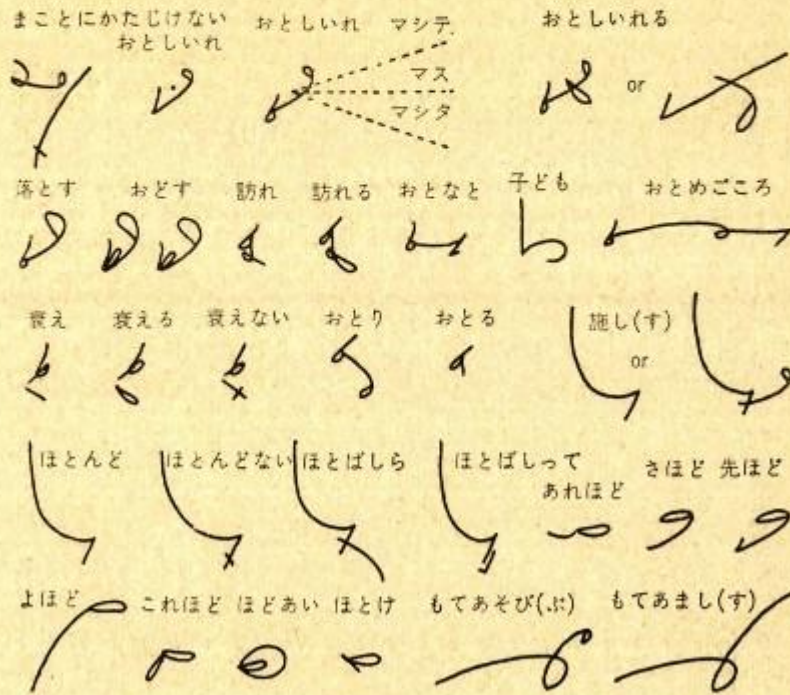 まことにかたじけない
おとしいれ おとしいれ マシテ おとしいれる
マス or
マシタ
落とす おどす 訪れ 訪れる おとなと 子ども おとめごころ
衰え 衰える 衰えない おとり おとる 施し(す)
or
ほとんど ほとんどない ほとばしら ほとばしって
あれほど さほど 先ほど
よほど これほど ほどあい ほとけ もてあそび(ぶ) もてあまし(す)